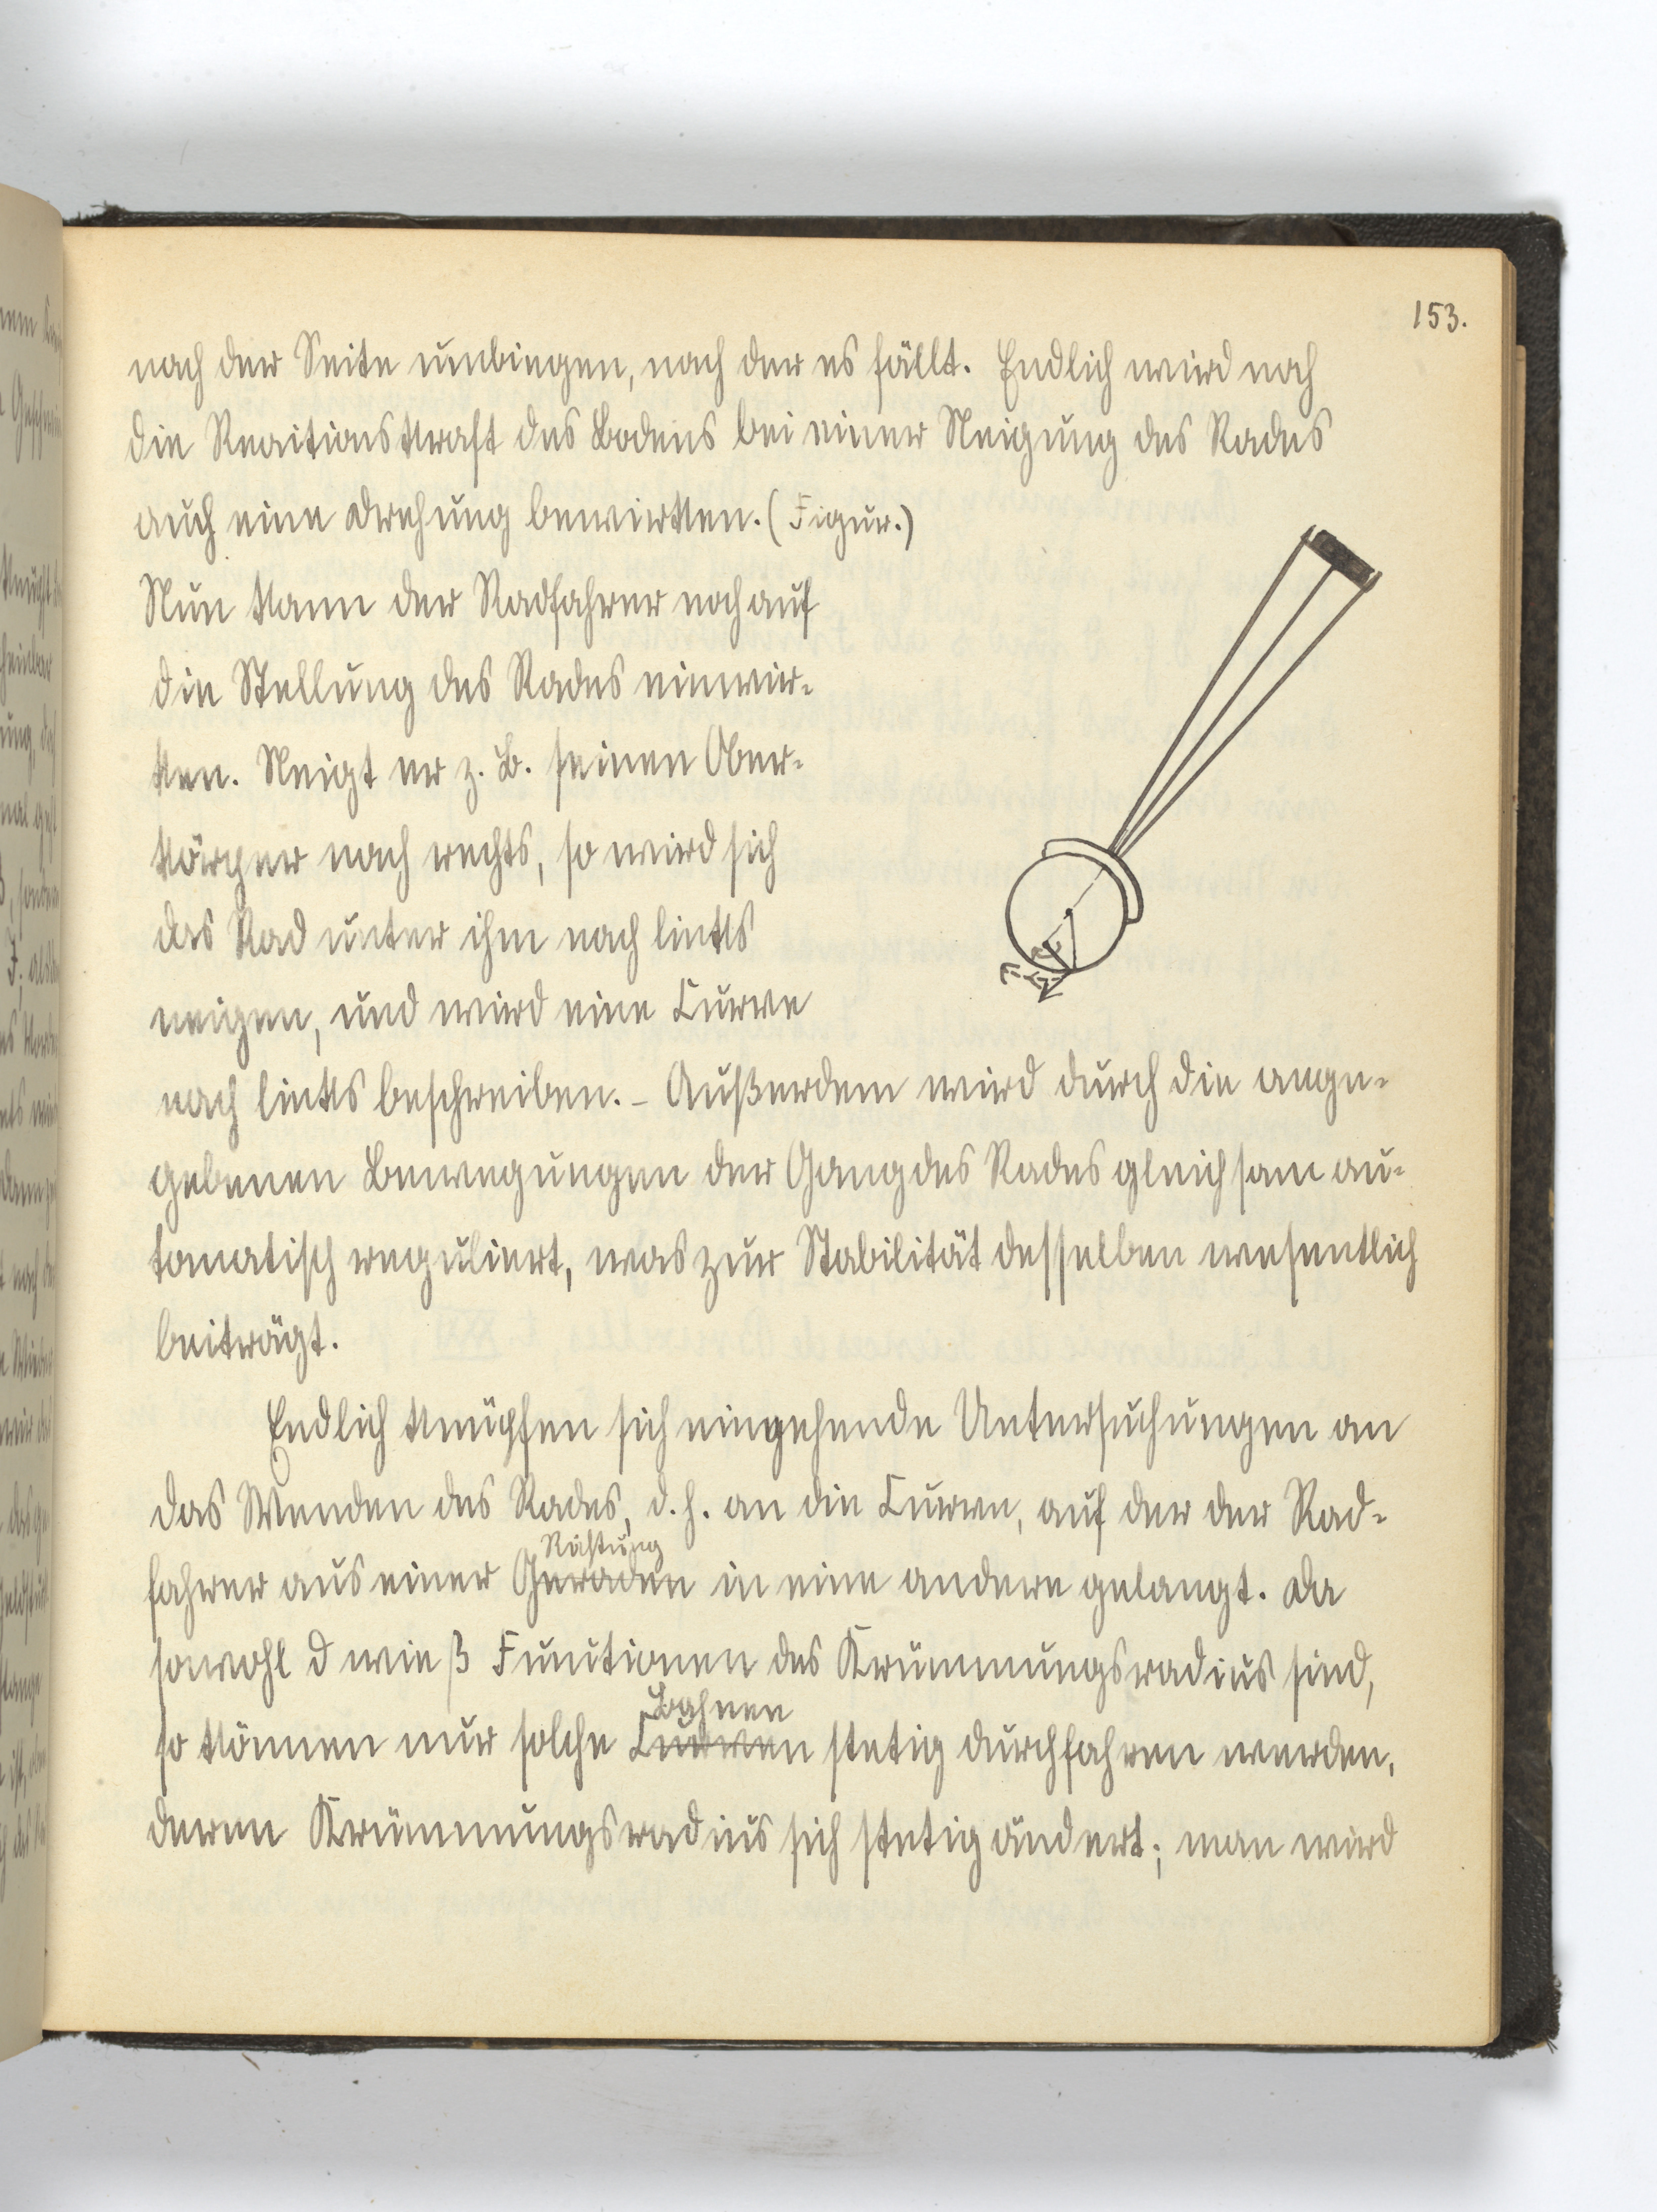 153.
nach der Seite umbiegen, nach der es fällt. Endlich wird noch
die Reactionskraft des Bodens bei einer Neigung des Rades
auch eine Drehung bewirken. (Figur.)
Nun kann der Radfahrer noch auf
die Stellung des Rades einwir-
ken. Neigt er z. B. seinen Ober-
körper nach rechts, so wird sich
das Rad unter ihm nach links
neigen, und wird eine Curve
nach links beschreiben. – Außerdem wird durch die ange-
gebenen Bewegungen der Gang des Rades gleichsam au-
tomatisch reguliert, was zur Stabilität desselben wesentlich
beiträgt.
Endlich knüpfen sich eingehende Untersuchungen an
das Wenden des Rades, d. h. an die Curve, auf der der Rad-
Richtung
fahrer aus einer Geraden in eine andere gelangt. Da
sowohl d wie β Functionen des Krümmungsradius sind,
Bahnen
so können nur solche Curven stetig durchfahren werden,
deren Krümmungsradius sich stetig ändert; man wird